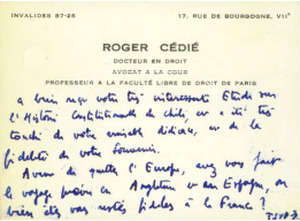 INVALIDES 87-26 17, RUE DE BOURGOGNE, VIIe
ROGER CÉDIÉ
DOCTEUR EN DROIT
AVOCAT A LA COUR
PROFESSEUR A LA FACULTÉ LIBRE DE DROIT DE PARIS
a bien reçu votre très intéressante Etude sur
l'Histoire Constitutionnelle du Chili, et a été très
touché de votre aimable dédicace, et de la
fidélité de votre souvenir.
Avant de quitter l'Europe, avez vous fait
le voyage en Angleterre ou en Espagne, ou
bien êtes vous restés fidèles à la France ?